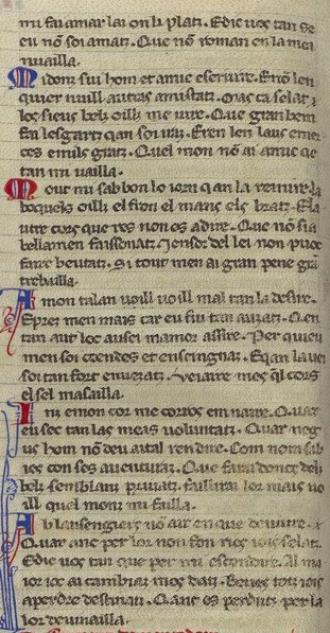 mi fai amar lai on li platz. E dic uos tan qe
eu nō soi amatz. Que nō roman en la mei
nuailla.
Midonz sui hom et amic eseruire. E nō len
quier nuill autras amistatz. Mas ca selat i
los sieus bels oillz me uire. Que gran bem
fan lesgartz qan soi iratz. E ren len laus emer
ces emils gratz. Quel mon nō ai amic qe
tan mi uailla.
Mout mi sab bon lo iorn qan la remire. la
boquels oills el fron el mans els bratz. El au
tre cors que res non os adire. Que nō sia
bellamen faissonatz. Ienser del lei non poec
faire beutatz. Si tout men ai gran pene grā
trebailla.
A mon talan uoill uoill mal tan la desire.
E pretz men mais car eu fui tan auzatz. Q en
tan aut loc ausei mamor assire. Per quieu
men soi coendes et enseingnatz. E qan la uei
soi tan fort enuezatz. Veiaire mes ql cors
el sel masailla.
Inz e mon cor me corros e m naire. Quar
eu sec tan las meas voluntatz. Quar neg
us hom nō deu aital ren dire. Com nom sab
ies con ses auenturatz. Que farai doncs dels
bels semblanz priuatz. faillirai lor mais uo
ill quel monz mi failla.
Ab lausengiers nō ai en que deuire.
Quar anc per lor non fon ries iois selatz.
E dic uos tan que per mi escondire. Al ma
ior ioc ai cambiar mos datz. Beires totz iois
aperdre destinatz. Q anc es perdutz per la
lor deuinailla.